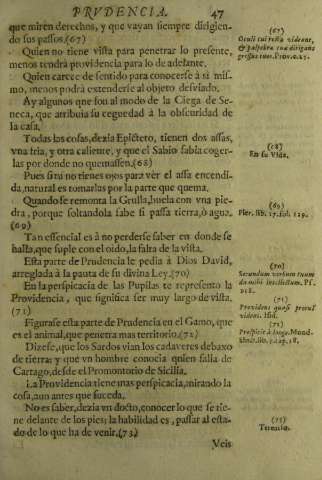 PRVDENCIA. 47
que miren derechos, y que vayan siempre dirigien-
do sus passos. (67)
Quien no tiene vista para penetrar lo presente,
menos tendrá providencia para lo de adelante.
Quien carece de sentido para conocerse à si mis-
mo, menos podrá estenderse al objeto desviado.
Ay algunos que son al modo de la Ciega de Se-
neca, que atribuia su ceguedad á la obscuridad de
la casa.
Todas las cosas, dezia Epicteto, tienen dos assas,
vna fria, y otra caliente, y que el Sabio sabia coger-
las por donde no quemassen. (68)
Pues si tu no tienes ojos para vèr el assa encendi-
da, natural es tomarlas por la parte que quema.
Quando se remonta la Grulla, buela con vna pie-
dra, porque soltandola sabe si passa tierra, ò agua.
(69)
Tan essencial es à no perderse saber en donde se
halla, que suple con el oìdo, la falta de la vista.
Esta parte de Prudencia le pedia à Dios David,
arreglada à la pauta de su divina Ley. (70)
En la perspicacia de las Pupilas te represento la
Providencia, que significa ser muy largo de vista.
(71)
Figurase esta parte de Prudencia en el Gamo, que
es el animal, que penetra mas territorio. (72)
Dizese, que los Sardos vian los cadaveres debaxo
de tierra: y que vn hombre conocia quien salia de
Cartago, desde el Promontorio de Sicilia.
La Providencia tiene mas perspicacia, mirando la
cosa, aun antes que suceda.
No es saber, dezia vn docto, conocer lo que se tie-
ne delante de los pies; la habilidad es, passar al esta-
do de lo que ha de venir. (73)
Veis
(67)
Oculi tui recta videant,
& palpebra tua dirigant
gressus tuos. Prov. 4. 25.
(68)
En su Vida.
(69)
Pier. lib. 17. fol. 129.
(70)
Secundum verbum tuum
da mihi intellectum. Ps.
118.
(71)
Providens quasi procul
videns. Isid.
(72)
(73)
Terencio.